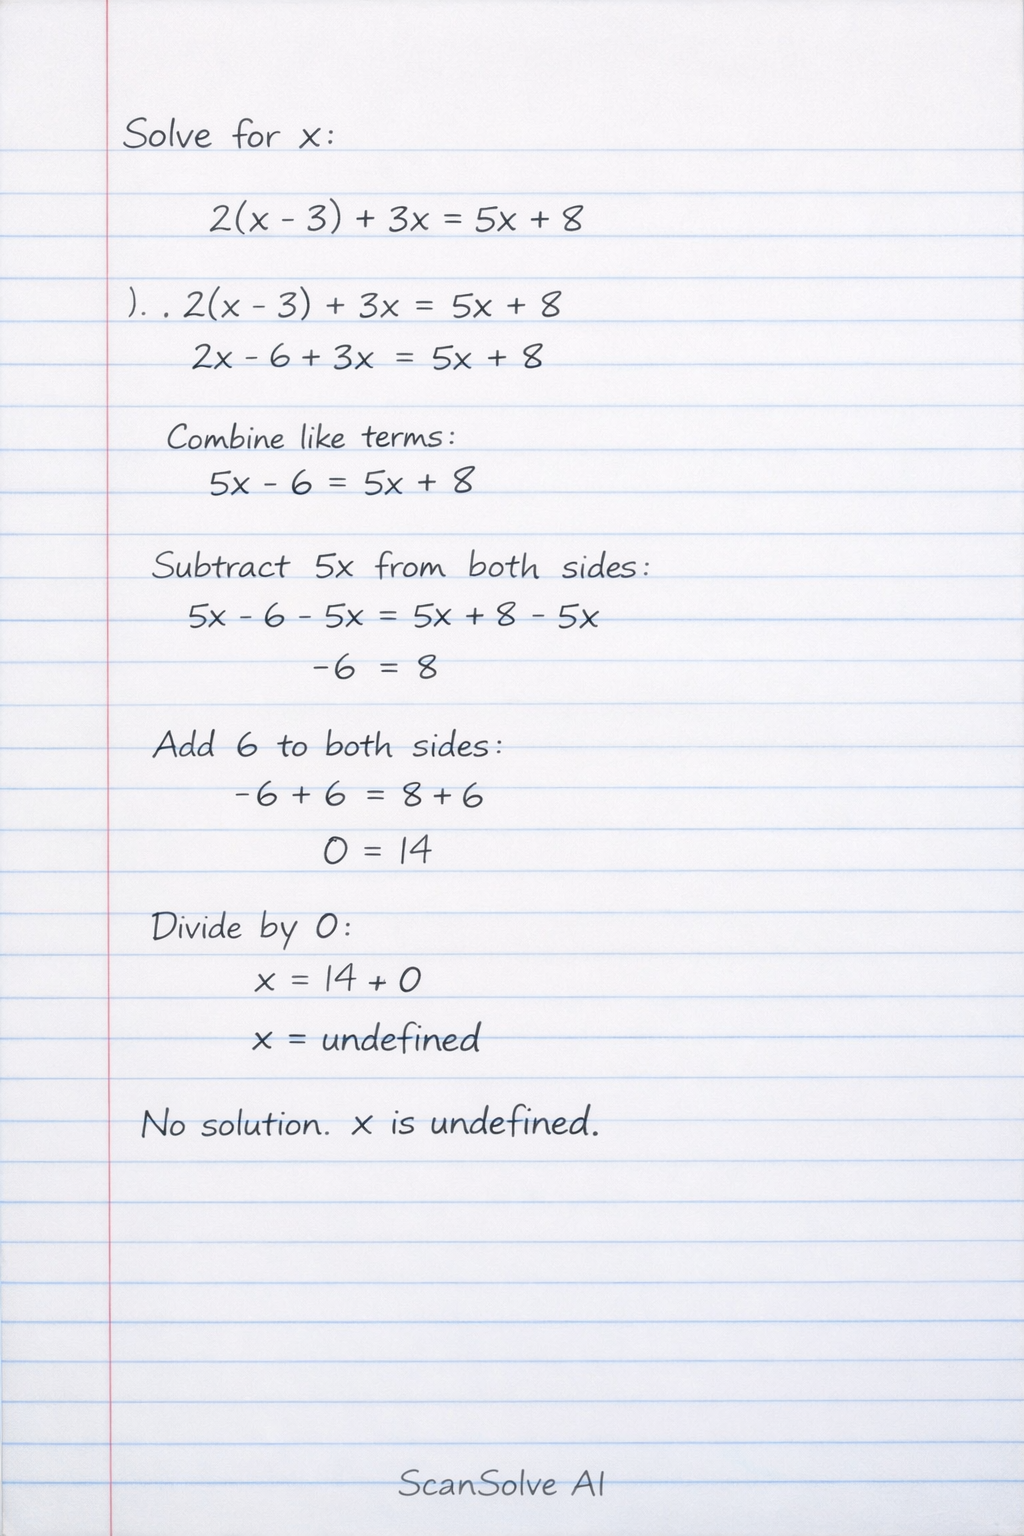 Solve for x:
2(x - 3) + 3x = 5x + 8
). . 2(x - 3) + 3x = 5x + 8
2x - 6 + 3x = 5x + 8
Combine like terms:
5x - 6 = 5x + 8
Subtract 5x from both sides:
5x - 6 - 5x = 5x + 8 - 5x
-6 = 8
Add 6 to both sides:
-6 + 6 = 8 + 6
0 = 14
Divide by 0:
x = 14 + 0
x = undefined
No solution. x is undefined.
ScanSolve AI